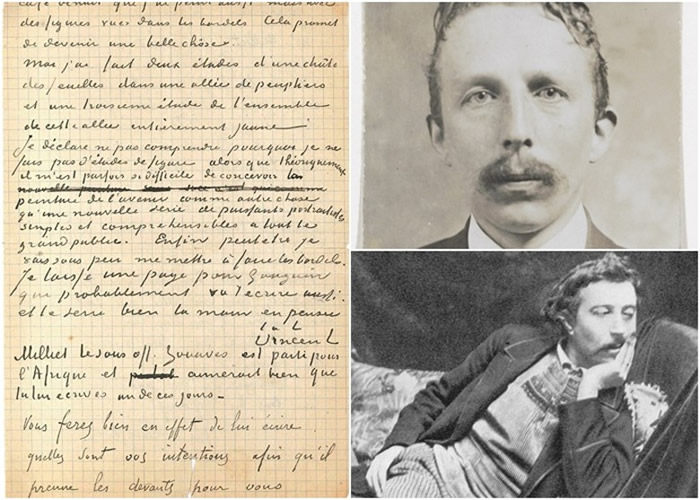 café venant que j'ai peint aussi mais avec
des figures vues dans les bordels Cela promet
de devenir une belle chôse.
Moi j'ai fait deux études d'une chûte
des feuilles dans une allée de peupliers
et une troisieme étude de l'ensemble
de cette allée entièrement jaune
Je déclare ne pas comprendre pourquoi je ne
fais pas d'études de figure alors que théoriquement
il m'est parfois si difficile de concevoir la
peinture de l'avenir comme autre chose
qu'une nouvelle serie de puissants portraitistes
simples et comprehensibles a tout le
grand public. Enfin peut être je
vais sous peu me mettre à faire les bordels.
Je laisse une page pour Gauguin
qui probablement va t'ecrire aussi.
et te serre bien la main en pensée
t. à t.
Vincent
Milliet le sous off. Zouaves est parti pour
l'Afrique et aimerait bien que
tu lui ecrives un de ces jours –
Vous ferez bien en effet de lui écrire
quelles sont vos intentions afin qu'il
prenne les devants pour vous